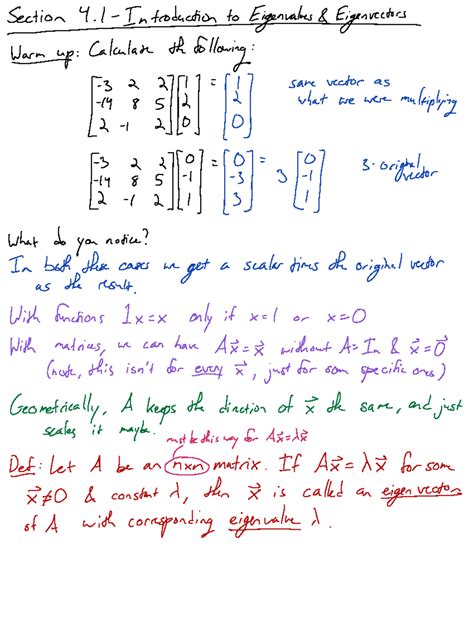 Section 4.1 - Introduction to Eigenvalues & Eigenvectors
Warm up: Calculate the following:
[-3 2 2; -14 8 5; 2 -1 2] [1; 2; 0] = [1; 2; 0] same vector as what we were multiplying
[-3 2 2; -14 8 5; 2 -1 2] [0; -1; 1] = [0; -3; 3] = 3 [0; -1; 1] 3·original vector
What do you notice?
In both these cases we get a scalar times the original vector
as the result.
With functions 1x=x only if x=1 or x=0
With matrices, we can have Ax⃗=x⃗ without A=In & x⃗=0⃗
(note, this isn't for every x⃗, just for some specific ones)
Geometrically, A keeps the direction of x⃗ the same, and just
scales it maybe.
must be this way for Ax⃗=λx⃗
Def: Let A be an nxn matrix. If Ax⃗=λx⃗ for some
x⃗≠0 & constant λ, then x⃗ is called an eigenvector
of A with corresponding eigenvalue λ.